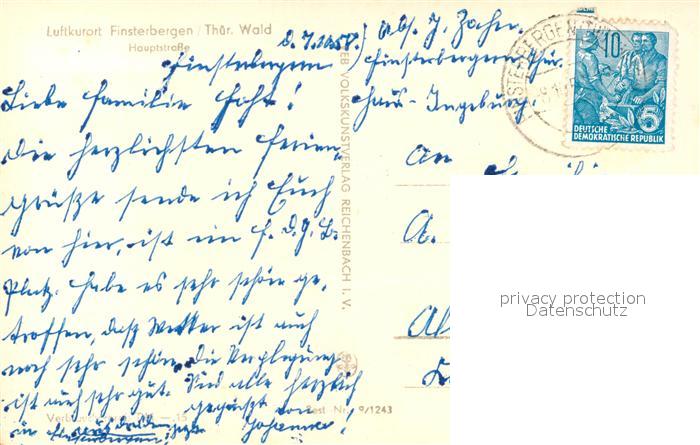 Luftkurort Finsterbergen / Thür. Wald
Hauptstraße
Finsterbergen d. 7.10.58.
Liebe Familie
die herzlichsten Ferien-
grüße sende ich Euch
von hier, ist ein F.D.G.B.
Platz. Habe es sehr schön ge-
troffen, das Wetter ist auch
noch sehr schön, die Verpflegung
ist auch sehr gut. Seid alle herzlich
gegrüßt von
Johanna!
Abs. J.
Finsterbergen Thür.
Haus-Ingeburg
An
A.
VEB VOLKSKUNSTVERLAG REICHENBACH I. V.
Best.-Nr. 9/1243
FINSTERBERGEN
10
5
DEUTSCHE
DEMOKRATISCHE REPUBLIK
privacy protection
Datenschutz